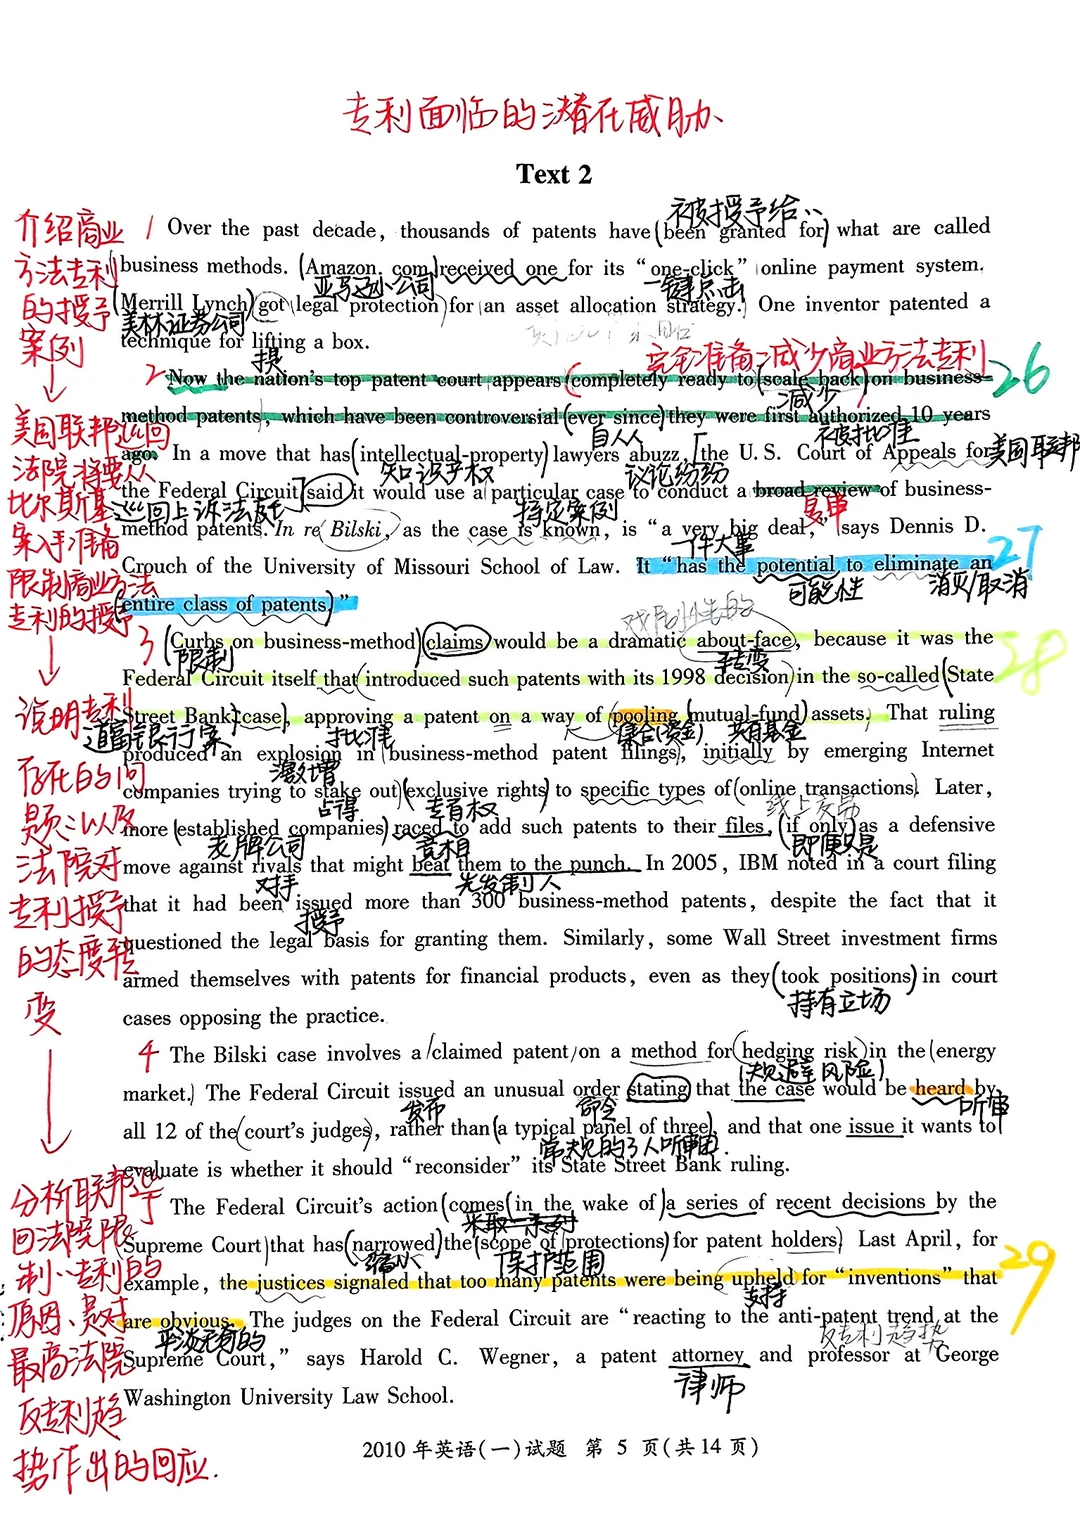 专利面临的潜在威胁
Text 2
被授予给
介绍商业
方法专利
的授予
案例
1 Over the past decade, thousands of patents have (been granted for) what are called
business methods. (Amazon. com) received one for its “one-click” online payment system.
亚马逊公司
一键点击
(Merrill Lynch) got legal protection for an asset allocation strategy. One inventor patented a
美林证券公司
technique for lifting a box.
提
完全准备减少商业方法专利
26
2 Now the nation's top patent court appears (completely ready to (scale back) on business-
减少
method patents, which have been controversial (ever since) they were first authorized 10 years
自从
被批准
美国联邦巡回
法院将要从
比尔斯基
案入手准备
限制商业方法
专利的授予
ago. In a move that has (intellectual-property) lawyers abuzz, [the U. S. Court of Appeals for
知识产权
议论纷纷
美国联邦
the Federal Circuit] said it would use a particular case to conduct a broad review of business-
巡回上诉法院
特定案例
复审
method patents. In re Bilski, as the case is known, is “a very big deal,” says Dennis D.
一件大事
27
Crouch of the University of Missouri School of Law. It “has the potential to eliminate an
可能性
消灭/取消
entire class of patents.”
戏剧性的
28
3 (Curbs on business-method) claims would be a dramatic about-face, because it was the
限制
转变
Federal Circuit itself that introduced such patents with its 1998 decision in the so-called (State
说明专利
存在的问
题以及
法院对
专利授予
的态度转
变
Street Bank case), approving a patent on a way of pooling (mutual-fund) assets. That ruling
道富银行案
批准
集合(资金)
共有基金
produced an explosion in business-method patent filings, initially by emerging Internet
激增
companies trying to stake out (exclusive rights) to specific types of (online transactions). Later,
占得
专有权
线上交易
more (established companies) raced to add such patents to their files, (if only) as a defensive
老牌公司
竞相
即便只是
move against rivals that might beat them to the punch. In 2005, IBM noted in a court filing
对手
先发制人
that it had been issued more than 300 business-method patents, despite the fact that it
授予
questioned the legal basis for granting them. Similarly, some Wall Street investment firms
armed themselves with patents for financial products, even as they (took positions) in court
持有立场
cases opposing the practice.
4 The Bilski case involves a claimed patent on a method for (hedging risk) in the (energy
(规避风险)
market.) The Federal Circuit issued an unusual order stating that the case would be heard by
发布
命令
听审
all 12 of the (court's judges), rather than (a typical panel of three), and that one issue it wants to
常规的3人听审团
evaluate is whether it should “reconsider” its State Street Bank ruling.
分析联邦巡
回法院限
制专利的
原因、是对
最高法院
反专利趋
势作出的回应.
The Federal Circuit's action (comes (in the wake of) a series of recent decisions by the
Supreme Court) that has (narrowed) the (scope of protections) for patent holders. Last April, for
缩小
保护范围
29
example, the justices signaled that too many patents were being upheld for “inventions” that
支持
are obvious. The judges on the Federal Circuit are “reacting to the anti-patent trend at the
平淡无奇的
反专利趋势
Supreme Court,” says Harold C. Wegner, a patent attorney and professor at George
律师
Washington University Law School.
2010 年英语(一)试题 第 5 页(共14 页)